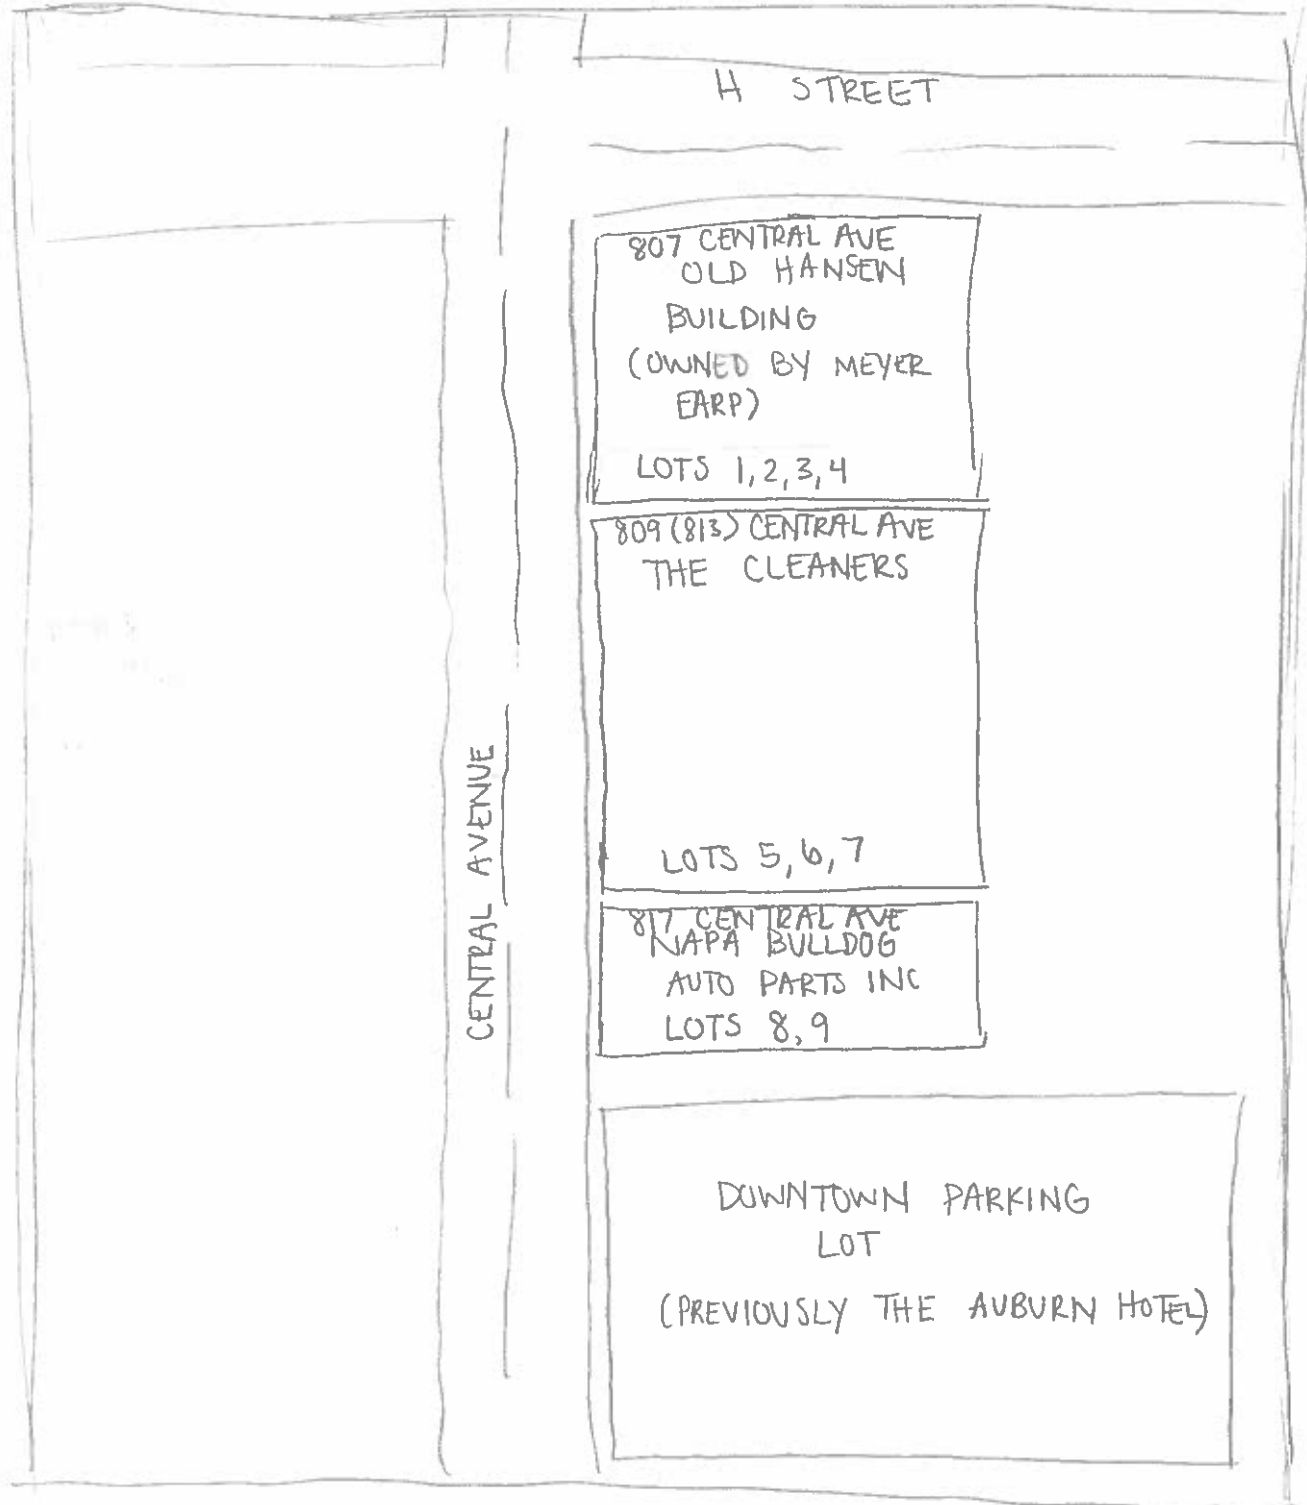 H STREET
807 CENTRAL AVE
OLD HANSEN
BUILDING
(OWNED BY MEYER
EARP)
LOTS 1,2,3,4
809 (813) CENTRAL AVE
THE CLEANERS
LOTS 5,6,7
CENTRAL AVENUE
817 CENTRAL AVE
NAPA BULLDOG
AUTO PARTS INC
LOTS 8,9
DOWNTOWN PARKING
LOT
(PREVIOUSLY THE AUBURN HOTEL)